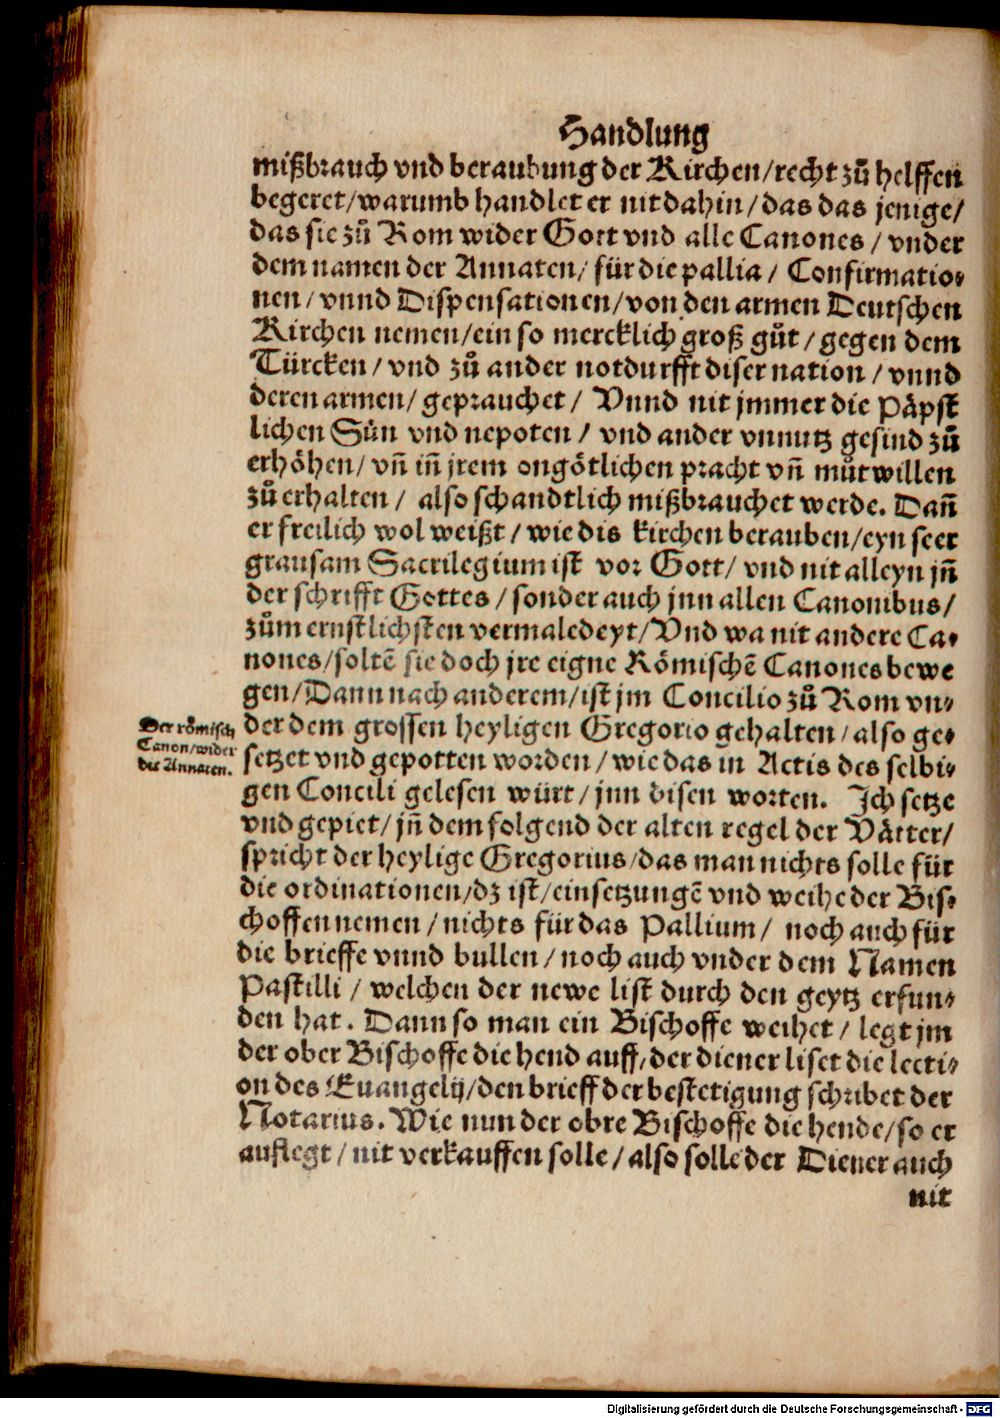 Handlung
mißbrauch vnd beraubung der Kirchen/recht zů helffen
begeret/warumb handlet er nit dahin/das das jenige/
das sie zů Rom wider Gott vnd alle Canones/vnder
dem namen der Annaten/für die pallia/Confirmatio⸗
nen/vnnd Dispensationen/von den armen Deutschen
Kirchen nemen/ein so mercklich groß gůt/gegen dem
Türcken/vnd zů ander notdurfft diser nation/vnnd
deren armen/geprauchet/Vnnd nit jmmer die Påpst
lichen Sün vnd nepoten/vnd ander vnnutz gesind zů
erhöhen/vñ iñ jrem ongötlichen pracht vñ můtwillen
zů erhalten/also schandtlich mißbrauchet werde. Dañ
er freilich wol weißt/wie dis kirchen berauben/eyn seer
grausam Sacrilegium ist vor Gott/vnd nit alleyn jñ
der schrifft Gottes/sonder auch jnn allen Canonibus/
zům ernstlichsten vermaledeyt/Vnd wa nit andere Ca⸗
nones/soltē sie doch jre eigne Römischē Canones bewe
gen/Dann nach anderem/ist jm Concilio zů Rom vn⸗
der dem grossen heyligen Gregorio gehalten/also ge⸗
setzet vnd gepotten worden/wie das in Actis des selbi⸗
gen Concili gelesen würt/jnn disen worten. Ich setze
vnd gepiet/jñ dem folgend der alten regel der Våtter/
spricht der heylige Gregorius/das man nichts solle für
die ordinationen/dz ist/einsetzungē vnd weihe der Bis⸗
choffen nemen/nichts für das Pallium/noch auch für
die brieffe vnnd bullen/noch auch vnder dem Namen
Pastilli/welchen der newe list durch den geytz erfun⸗
den hat. Dann so man ein Bischoffe weihet/legt jm
der ober Bischoffe die hend auff/der diener liset die lecti⸗
on des Euangelij/den brieff der bestetigung schribet der
Notarius. Wie nun der obre Bischoffe die hende/so er
auflegt/nit verkauffen solle/also solle der Diener auch
nit
Der römisch
Canon/wider
die Annaten.
Digitalisierung gefördert durch die Deutsche Forschungsgemeinschaft - DFG